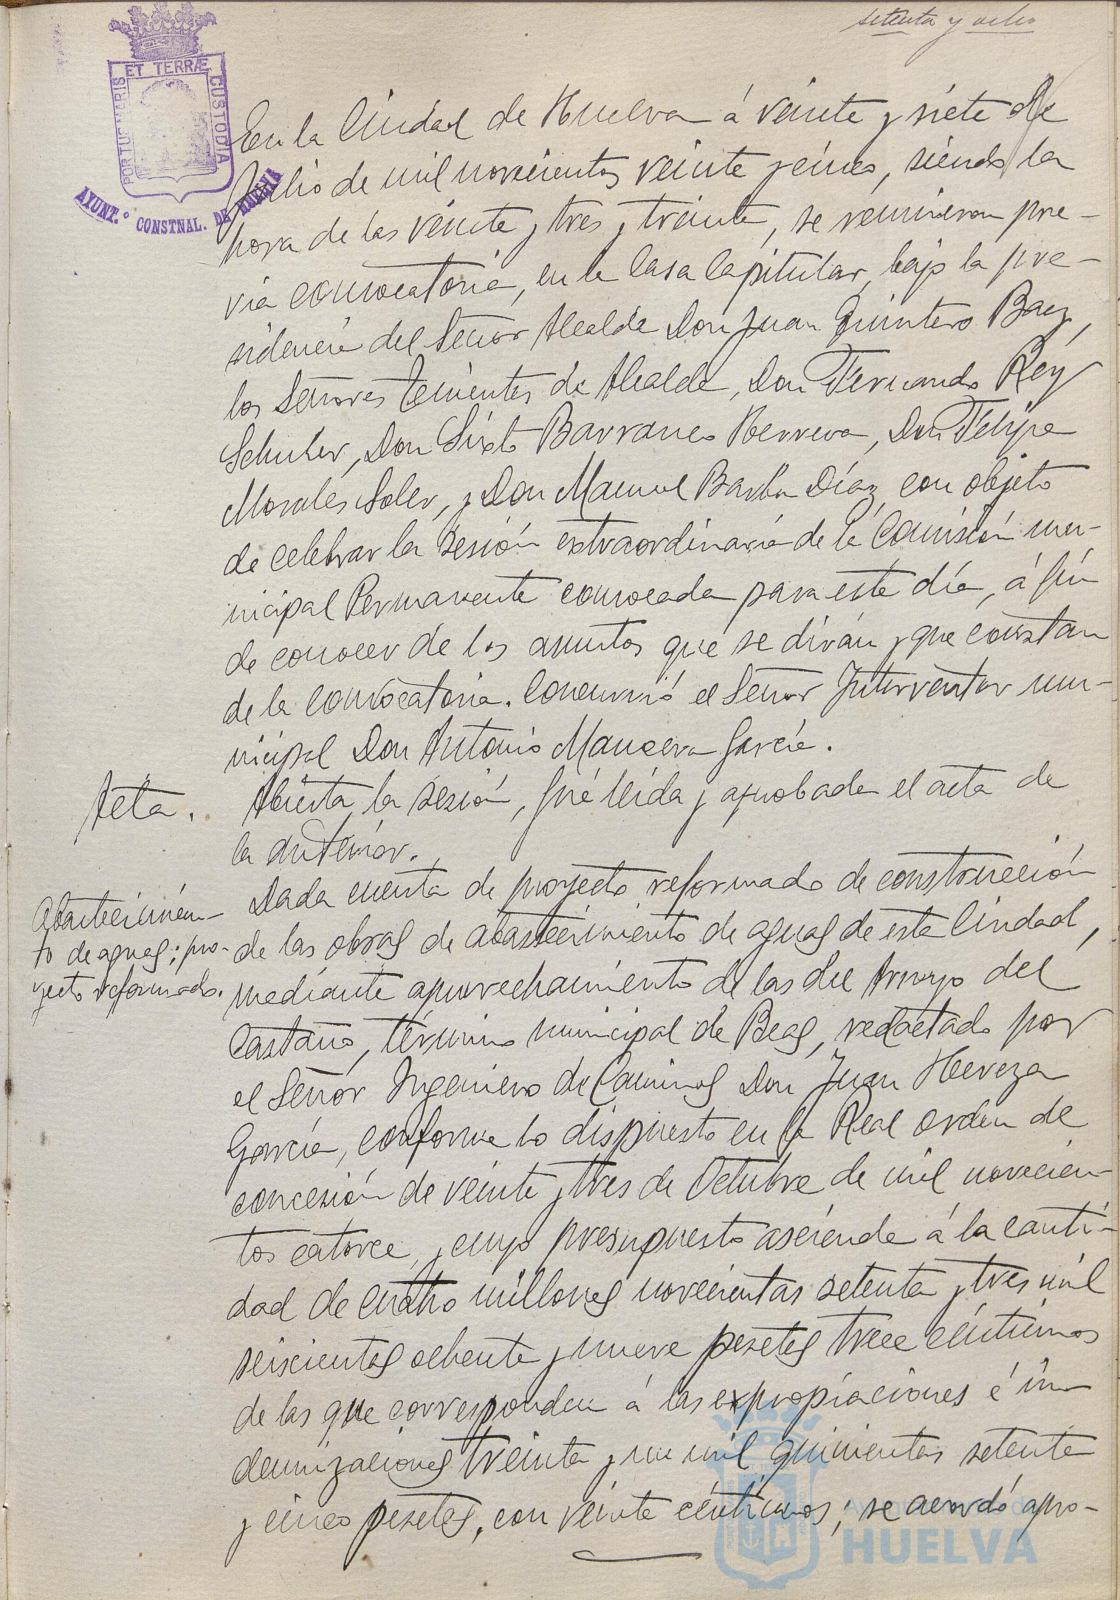 setenta y ocho
PORTUS MARIS ET TERRÆ CUSTODIA
AYUNT.º CONSTNAL. DE HUELVA
En la Ciudad de Huelva á veinte y siete de
Julio de mil novecientos veinte y cinco, siendo la
hora de las veinte y tres y treinta, se reunieron pre-
via convocatoria, en la Casa Capitular, bajo la pre-
sidencia del Señor Alcalde Don Juan Quintero Baez,
los Señores Tenientes de Alcalde, Don Fernando Rey
Schuler, Don Sixto Barranco Herrera, Don Felipe
Morales Soler, y Don Manuel Barba Díaz con objeto
de celebrar la sesión extraordinaria de la Comisión mu-
nicipal Permanente convocada para este día, á fin
de conocer de los asuntos que se dirán y que constan
de la convocatoria. Concurrió el Señor Interventor mu-
nicipal Don Antonio Mancera García.
Acta.
Abierta la sesión, fué leída y aprobada el acta de
la anterior.
Abastecimien-
to de aguas; pro-
yecto reformado.
Dada cuenta de proyecto reformado de construcción
de las obras de abastecimiento de aguas de esta Ciudad,
mediante aprovechamiento de las del Arroyo del
Castaño, término municipal de Beas, redactado por
el Señor Ingeniero de Caminos Don Juan Hereza
García, conforme lo dispuesto en la Real orden de
concesión de veinte y tres de Octubre de mil novecien
tos catorce, y cuyo presupuesto asciende á la canti-
dad de cuatro millones novecientas setenta y tres mil
seiscientas ochenta y nueve pesetas trece céntimos
de las que corresponden á las expropiaciones é in-
demnizaciones treinta y un mil quinientas setenta
y cinco pesetas, con veinte céntimos; se acordó apro-
Ayuntamiento de
HUELVA